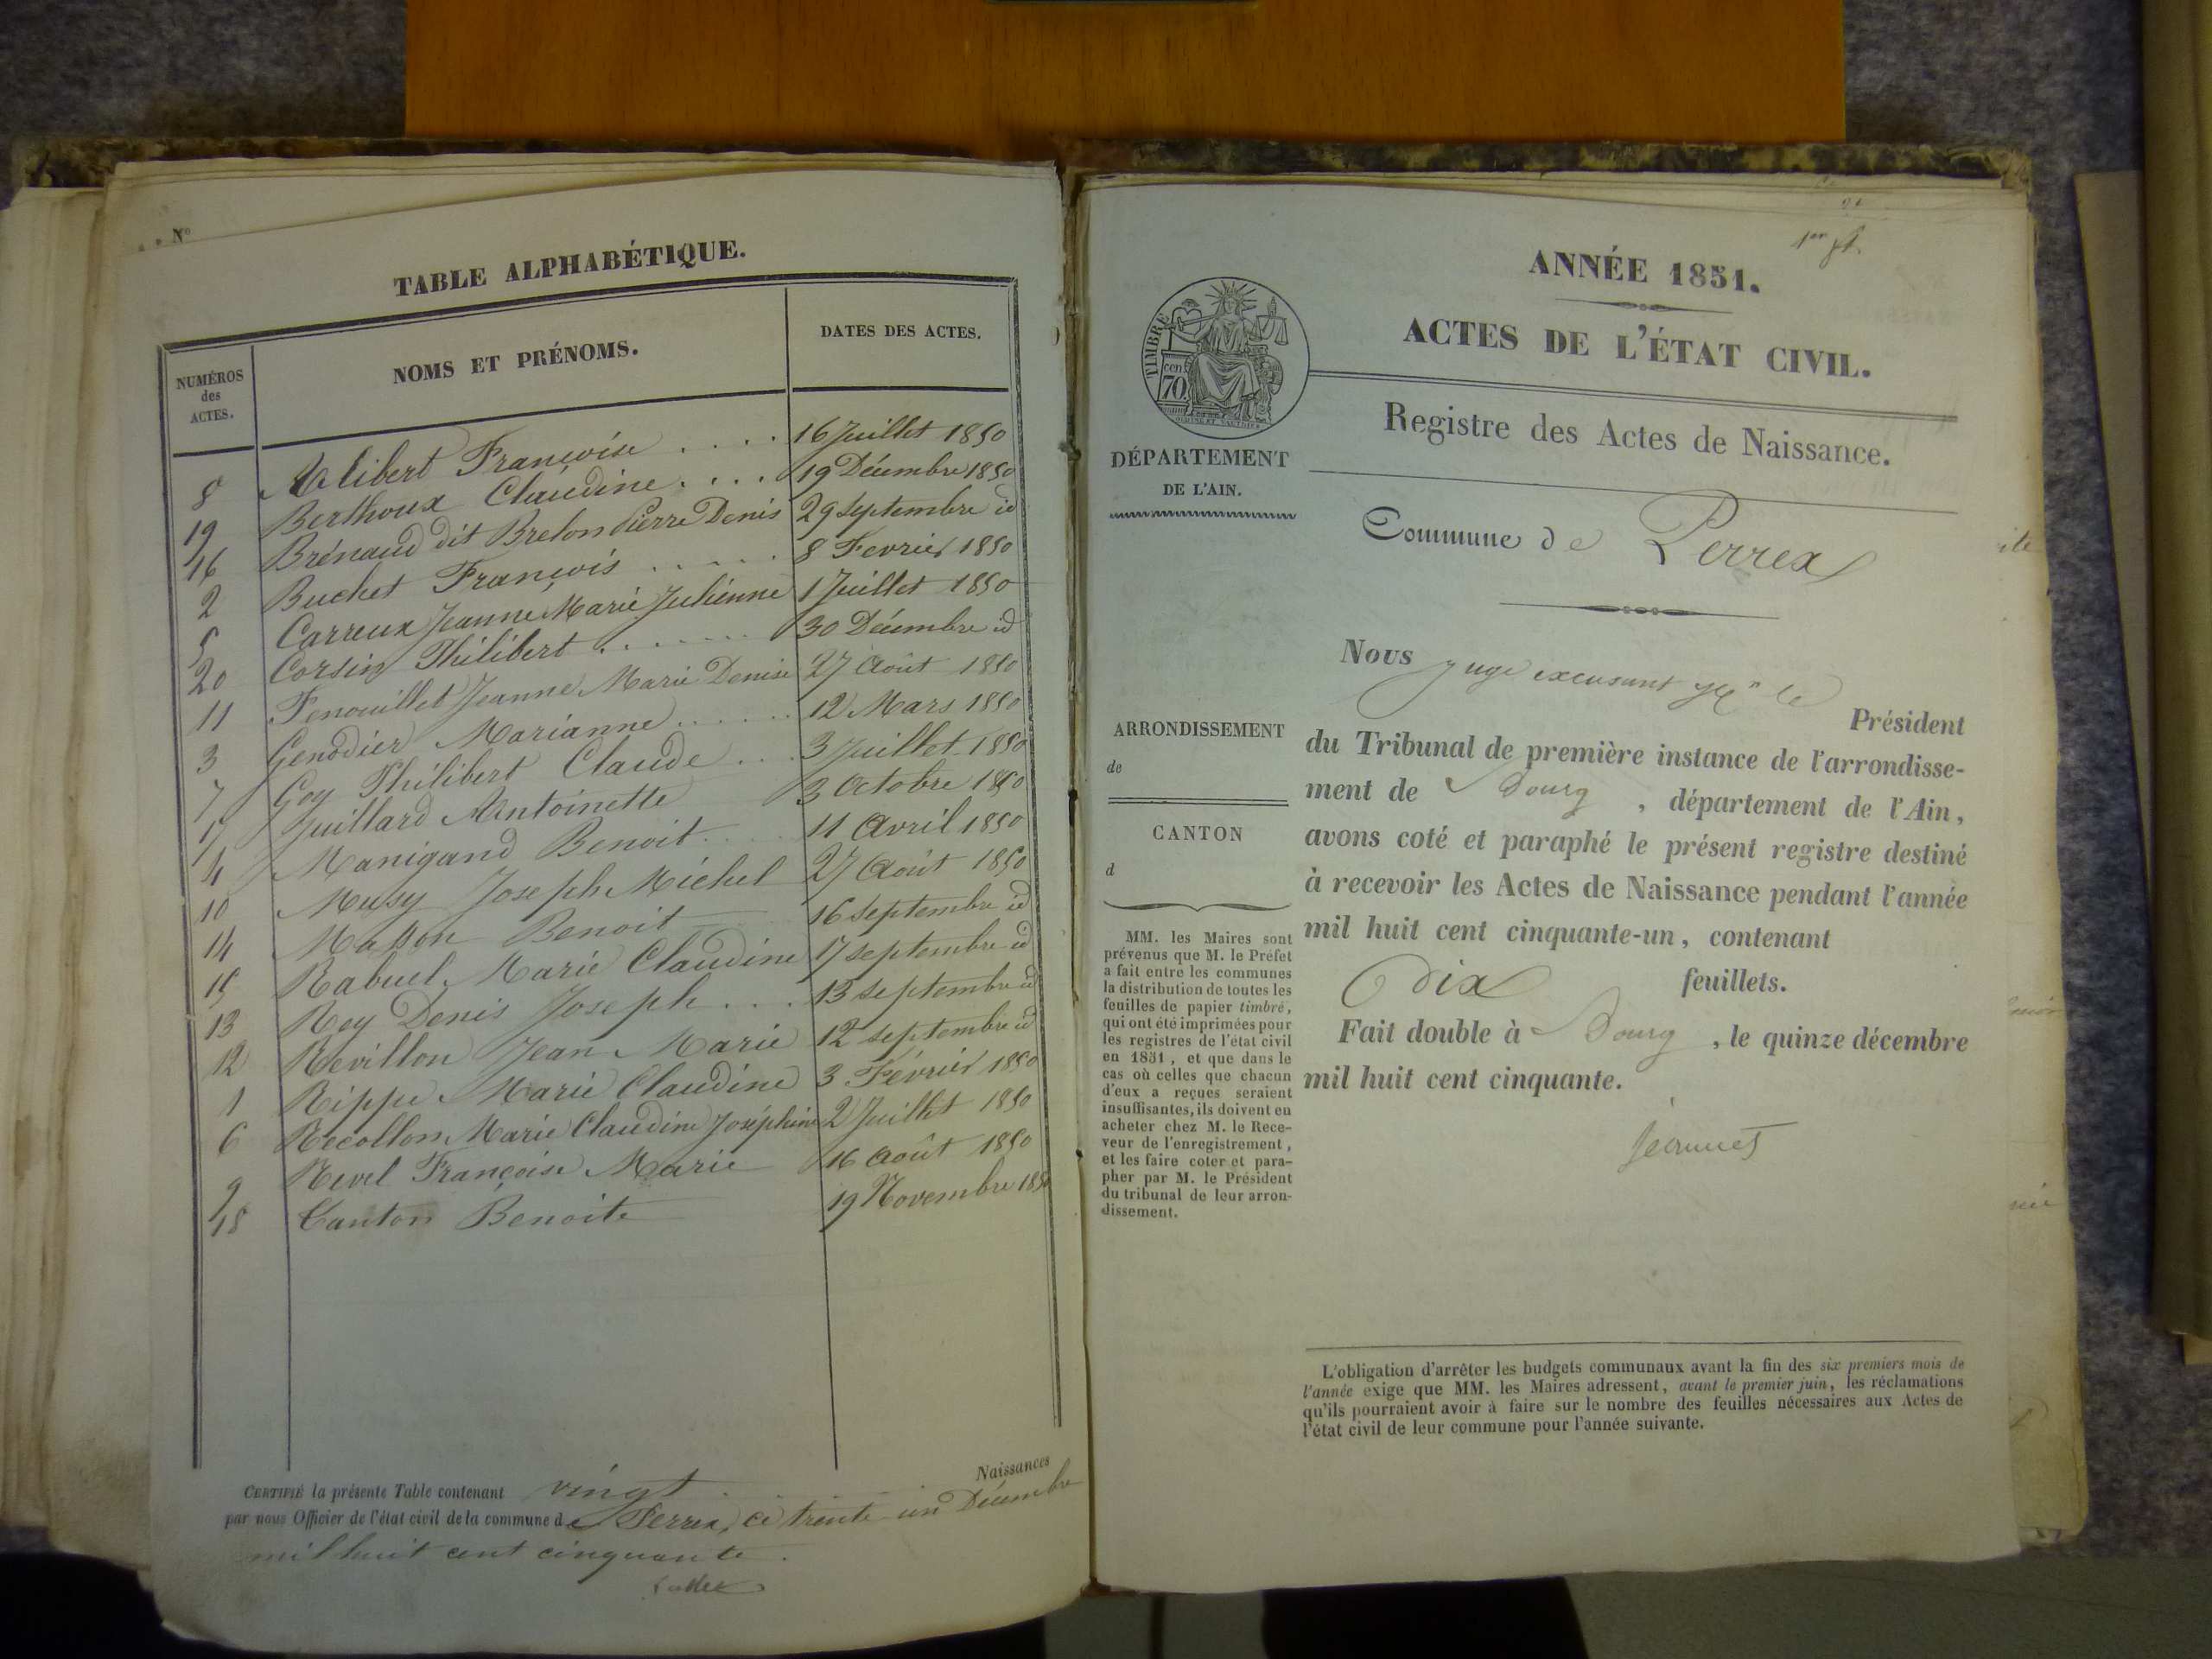 N°
TABLE ALPHABÉTIQUE.
NUMÉROS des ACTES. NOMS ET PRÉNOMS. DATES DES ACTES.
8 Alibert Françoise .... 16 Juillet 1850
19 Berthoux Claudine .... 19 Décembre 1850
16 Brénaud dit Breton Pierre Denis 29 septembre id
2 Buchet François ..... 8 Fevrier 1850
5 Carreux Jeanne Marie Julienne 1 Juillet 1850
20 Corsin Philibert ....... 30 Décembre id
11 Fenouillet Jeanne Marie Denise 27 Août 1850
3 Genodier Marianne ...... 12 Mars 1850
7 Goy Philibert Claude ... 3 Juillet 1850
17 Juillard Antoinette 3 Octobre 1850
4 Manigand Benoit 11 Avril 1850
10 Musy Joseph Michel 27 Août 1850
14 Masson Benoit 16 septembre id
15 Rabuel Marie Claudine 17 septembre id
13 Rey Denis Joseph .... 13 septembre id
12 Revillon Jean Marie 12 septembre id
1 Rippe Marie Claudine 3 Février 1850
6 Recollon Marie Claudine Joséphine 2 Juillet 1850
9 Revel Françoise Marie 16 Août 1850
18 Canton Benoite 19 Novembre 1850
CERTIFIÉ la présente Table contenant vingt Naissances
par nous Officier de l'état civil de la commune de Perrex, ce trente un Décembre
mil huit cent cinquante.
1er ft.
ANNÉE 1851.
ACTES DE L'ÉTAT CIVIL.
Registre des Actes de Naissance.
TIMBRE
70 cen
DÉPARTEMENT
DE L'AIN.
Commune de Perrex
ARRONDISSEMENT
de
CANTON
d
MM. les Maires sont
prévenus que M. le Préfet
a fait entre les communes
la distribution de toutes les
feuilles de papier timbré,
qui ont été imprimées pour
les registres de l'état civil
en 1851, et que dans le
cas où celles que chacun
d'eux a reçues seraient
insuffisantes, ils doivent en
acheter chez M. le Rece-
veur de l'enregistrement,
et les faire coter et para-
pher par M. le Président
du tribunal de leur arron-
dissement.
Nous juge excusant Mr le Président
du Tribunal de première instance de l'arrondisse-
ment de Bourg, département de l'Ain,
avons coté et paraphé le présent registre destiné
à recevoir les Actes de Naissance pendant l'année
mil huit cent cinquante-un, contenant
Dix feuillets.
Fait double à Bourg, le quinze décembre
mil huit cent cinquante.
Jeannet
L'obligation d'arrêter les budgets communaux avant la fin des six premiers mois de
l'année exige que MM. les Maires adressent, avant le premier juin, les réclamations
qu'ils pourraient avoir à faire sur le nombre des feuilles nécessaires aux Actes de
l'état civil de leur commune pour l'année suivante.